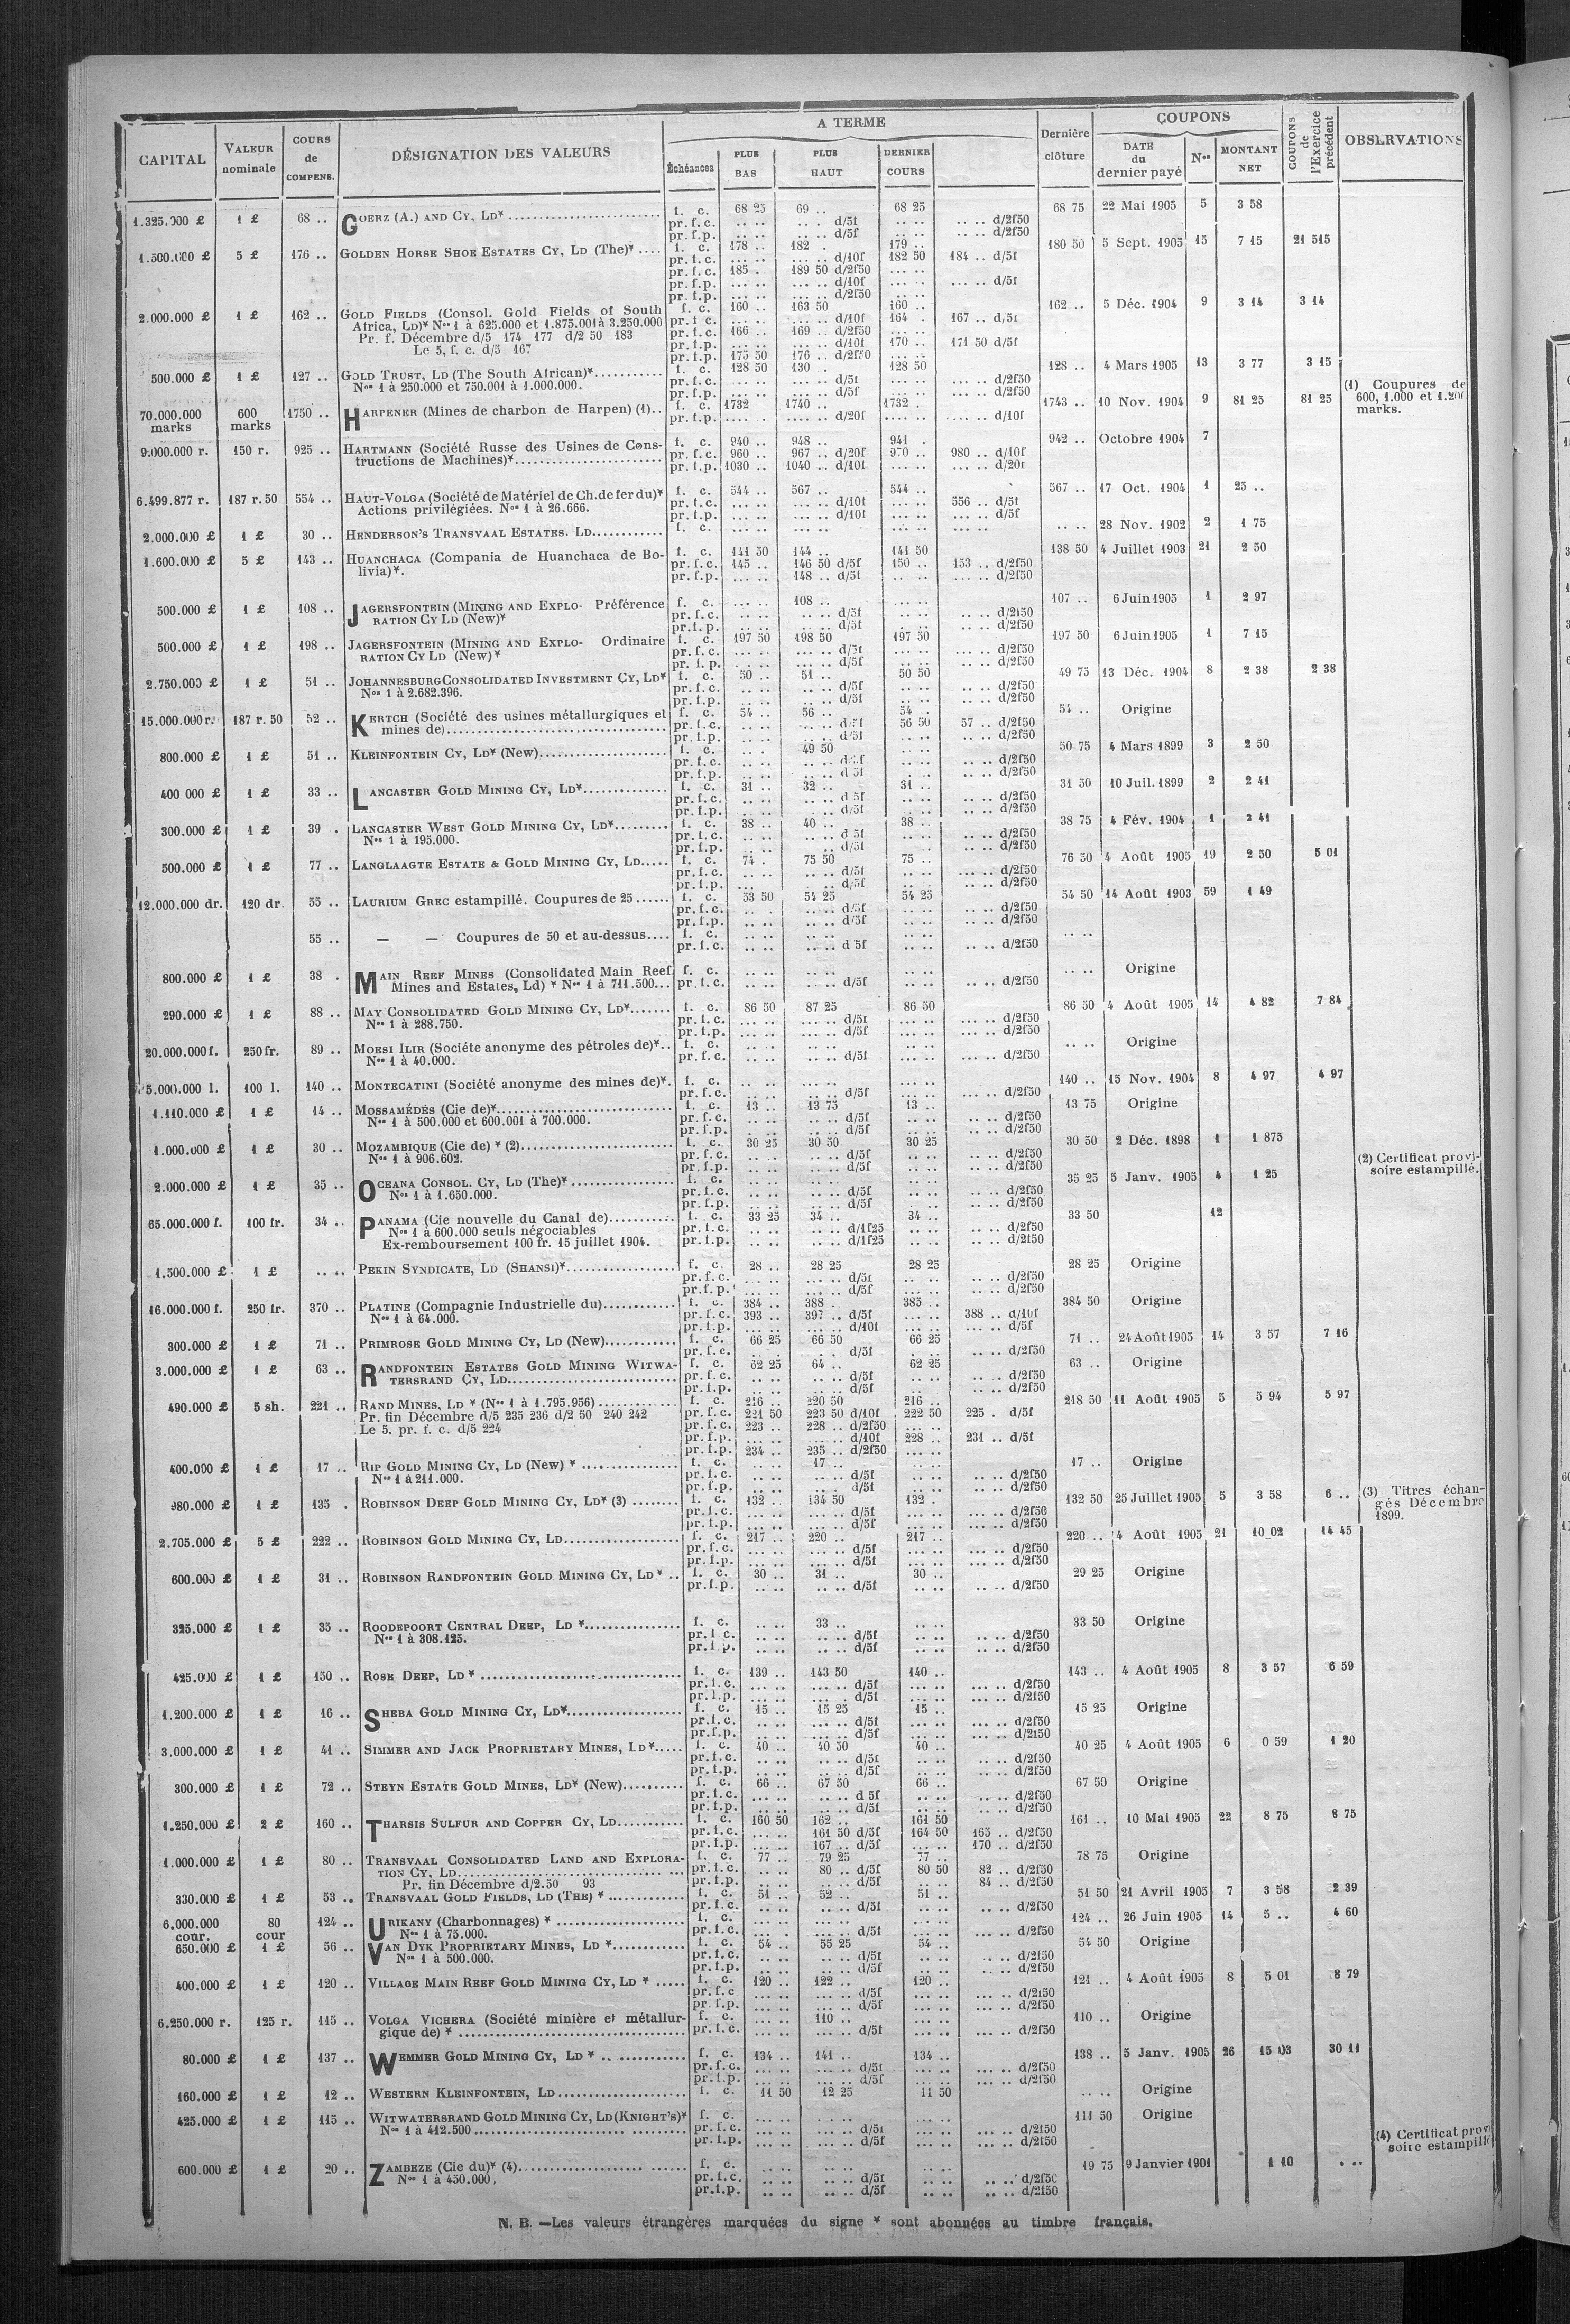 CAPITAL VALEUR nominale COURS de COMPENS. DÉSIGNATION DES VALEURS A TERME Échéances PLUS BAS PLUS HAUT DERNIER COURS Dernière clôture COUPONS DATE du dernier payé Nos MONTANT NET COUPONS de l'Exercice précédent OBSERVATIONS
1.325.000 £ 1 £ 68 .. GOERZ (A.) AND CY, LD* f. c. 68 25 69 .. 68 25 68 75 22 Mai 1905 5 3 58
pr. f. c. .. .. .. . d/5f .. .. .. .. d/2f50
pr. f. p. .. .. .. .. d/5f .. .. .. .. d/2f50
1.500.000 £ 5 £ 176 .. GOLDEN HORSE SHOE ESTATES CY, LD (The)* .... f. c. 178 .. 182 . 179 .. 180 50 5 Sept. 1905 15 7 15 21 515
pr. f. c. ... .. ... .. d/10f 182 50 184 .. d/5f
pr. f. c. 185 . 189 50 d/2f50 ... ..
pr. f. p. ... .. ... .. d/10f ... .. ... .. d/5f
pr. f. p. ... .. ... .. d/2f50 .. ..
2.000.000 £ 1 £ 162 .. GOLD FIELDS (Consol. Gold Fields of South f. c. 160 .. 163 50 160 .. 162 .. 5 Déc. 1904 9 3 14 3 14
Africa, LD)* Nos 1 à 625.000 et 1.875.001 à 3.250.000 pr. f. c. ... .. ... .. d/10f 164 . 167 .. d/5f
Pr. f. Décembre d/5 174 177 d/2 50 183 pr. f. c. 166 .. 169 .. d/2f50 ... ..
Le 5, f. c. d/5 167 pr. f. p. ... .. ... .. d/10f 170 .. 171 50 d/5f
pr. f. p. 175 50 176 .. d/2f50 ... ..
500.000 £ 1 £ 127 .. GOLD TRUST, LD (The South African)* f. c. 128 50 130 . 128 50 128 .. 4 Mars 1905 13 3 77 3 15
Nos 1 à 250.000 et 750.001 à 1.000.000. pr. f. c. ... .. ... .. d/5f ... .. d/2f50
pr. f. p. ... .. ... .. d/5f ... .. d/2f50
(1) Coupures de 600, 1.000 et 1.200 marks.
70.000.000 marks 600 marks 1750 .. HARPENER (Mines de charbon de Harpen) (1).. f. c. 1732 1740 .. 1732 . 1743 .. 10 Nov. 1904 9 81 25 81 25
pr. f. p. .... .. .... .. d/20f .... .. .... .. d/10f
9.000.000 r. 150 r. 925 .. HARTMANN (Société Russe des Usines de Cons- f. c. 940 .. 948 .. 941 . 942 .. Octobre 1904 7
tructions de Machines)* pr. f. c. 960 .. 967 .. d/20f 970 .. 980 .. d/10f
pr. f. p. 1030 .. 1040 .. d/10f ... .. ... .. d/20f
6.499.877 r. 187 r. 50 554 .. HAUT-VOLGA (Société de Matériel de Ch. de fer du)* f. c. 544 .. 567 .. 544 .. 567 .. 17 Oct. 1904 1 25 ..
Actions privilégiées. Nos 1 à 26.666. pr. f. c. ... .. ... .. d/10f 556 .. d/5f
pr. f. p. ... .. ... .. d/10f ... .. ... .. d/5f
2.000.000 £ 1 £ 30 .. HENDERSON'S TRANSVAAL ESTATES. LD f. c. ... .. ... .. ... .. .. .. 28 Nov. 1902 2 1 75
1.600.000 £ 5 £ 143 .. HUANCHACA (Compania de Huanchaca de Bo- f. c. 141 50 144 .. 141 50 138 50 4 Juillet 1903 21 2 50
livia)*. pr. f. c. 145 .. 146 50 d/5f 150 .. 153 .. d/2f50
pr. f. p. ... .. 148 .. d/5f .. .. ... .. d/2f50
500.000 £ 1 £ 108 .. JAGERSFONTEIN (MINING AND EXPLO- Préférence f. c. ... .. 108 .. ... .. 107 .. 6 Juin 1905 1 2 97
RATION CY LD (New)* pr. f. c. .. .. .. .. d/5f .. .. .. .. d/2f50
pr. f. p. .. .. .. .. d/5f .. .. .. .. d/2f50
500.000 £ 1 £ 198 .. JAGERSFONTEIN (MINING AND EXPLO- Ordinaire f. c. 197 50 198 50 197 50 197 50 6 Juin 1905 1 7 15
RATION CY LD (New)* pr. f. c. ... .. ... .. d/5f .. .. ... .. d/2f50
pr. f. p. ... .. d/5f .. .. .. .. d/2f50
2.750.000 £ 1 £ 51 .. JOHANNESBURG CONSOLIDATED INVESTMENT CY, LD* f. c. 50 .. 51 .. 50 50 49 75 13 Déc. 1904 8 2 38 2 38
Nos 1 à 2.682.396. pr. f. c. .. .. .. .. d/5f .. .. .. .. d/2f50
pr. f. p. .. .. .. .. d/5f .. .. .. .. d/2f50
15.000.000 r. 187 r. 50 52 .. KERTCH (Société des usines métallurgiques et f. c. 54 .. 56 .. 54 .. 54 .. Origine
mines de) pr. f. c. .. .. .. .. d/5f 56 50 57 .. d/2f50
pr. f. p. .. .. .. .. d/5f .. .. .. .. d/2f50
800.000 £ 1 £ 51 .. KLEINFONTEIN CY, LD* (New) f. c. .. . 49 50 .. .. 50 75 4 Mars 1899 3 2 50
pr. f. c. .. .. .. .. d/5f .. .. .. .. d/2f50
pr. f. p. .. .. .. .. d 5f .. .. .. .. d/2f50
400 000 £ 1 £ 33 .. LANCASTER GOLD MINING CY, LD* f. c. 31 .. 32 .. 31 .. 31 50 10 Juil. 1899 2 2 41
pr. f. c. .. .. .. .. d 5f .. .. .. .. d/2f50
pr. f. p. .. .. .. .. d/5f .. .. .. .. d/2f50
300.000 £ 1 £ 39 . LANCASTER WEST GOLD MINING CY, LD* f. c. 38 .. 40 .. 38 .. 38 75 4 Fév. 1904 1 2 41
Nos 1 à 195.000. pr. f. c. .. .. .. .. d 5f .. .. .. .. d/2f50
pr. f. p. .. .. .. d/5f .. .. .. .. d/2f50
500.000 £ 1 £ 77 .. LANGLAAGTE ESTATE & GOLD MINING CY, LD f. c. 74 . 75 50 75 .. 76 50 4 Août 1905 19 2 50 5 01
pr. f. c. .. .. .. .. d/5f .. .. ... .. d/2f50
pr. f. p. .. .. .. d/5f .. .. .. .. d/2f50
12.000.000 dr. 120 dr. 55 .. LAURIUM GREC estampillé. Coupures de 25 f. c. 53 50 54 25 54 25 54 50 14 Août 1903 59 1 49
pr. f. c. .. . .. .. d/5f .. .. .. .. d/2f50
pr. f. p. .. .. .. .. d/5f .. .. .. .. d/2f50
55 .. — — Coupures de 50 et au-dessus f. c. .. .. .. .. .. .. .. ..
pr. f. c. .. .. .. .. d 5f .. .. .. .. d/2f50
800.000 £ 1 £ 38 . MAIN REEF MINES (Consolidated Main Reef f. c. .. .. .. .. .. .. .. .. Origine
Mines and Estates, Ld) * Nos 1 à 711.500... pr. f. c. .. .. .. .. d/5f .. .. .. .. d/2f50
290.000 £ 1 £ 88 .. MAY CONSOLIDATED GOLD MINING CY, LD* f. c. 86 50 87 25 86 50 86 50 4 Août 1905 14 4 82 7 84
Nos 1 à 288.750. pr. f. c. ... .. ... .. d/5f ... .. ... .. d/2f50
pr. f. p. ... .. ... .. d/5f ... .. ... .. d/2f50
20.000.000 f. 250 fr. 89 .. MOESI ILIR (Sociéte anonyme des pétroles de)*.. f. c. .. .. .. .. .. .. .. .. Origine
Nos 1 à 40.000. pr. f. c. .. .. .. .. d/5f ... .. ... .. d/2f50
5.000.000 l. 100 l. 140 .. MONTECATINI (Société anonyme des mines de)*. f. c. .. .. .. .. ... .. 140 .. 15 Nov. 1904 8 4 97 4 97
pr. f. c. .. .. .. .. d/5f .. .. ... .. d/2f50
1.110.000 £ 1 £ 14 .. MOSSAMÉDÈS (Cie de)* f. c. 13 .. 13 75 13 .. 13 75 Origine
Nos 1 à 500.000 et 600.001 à 700.000. pr. f. c. .. .. .. .. d/5f .. .. .. .. d/2f50
pr. f. p. .. .. .. d/5f .. .. .. .. d/2f50
1.000.000 £ 1 £ 30 .. MOZAMBIQUE (Cie de) * (2) f. c. 30 25 30 50 30 25 30 50 2 Déc. 1898 1 1 875
Nos 1 à 906.602. pr. f. c. .. .. .. .. d/5f .. .. .. .. d/2f50
pr. f. p. .. .. .. .. d/5f .. .. .. .. d/2f50
(2) Certificat provi- soire estampillé.
2.000.000 £ 1 £ 35 .. OCEANA CONSOL. CY, LD (The)* f. c. .. .. .. .. .. .. 35 25 5 Janv. 1905 4 1 25
Nos 1 à 1.650.000. pr. f. c. .. .. .. .. d/5f .. .. .. .. d/2f50
pr. f. p. .. .. .. .. d/5f .. .. .. .. d/2f50
65.000.000 f. 100 fr. 34 .. PANAMA (Cie nouvelle du Canal de) f. c. 33 25 34 .. 34 .. 33 50 12
Nos 1 à 600.000 seuls négociables pr. f. c. .. .. .. .. d/1f25 .. .. .. .. d/2f50
Ex-remboursement 100 fr. 15 juillet 1904. pr. f. p. .. .. .. .. d/1f25 .. .. .. .. d/2f50
1.500.000 £ 1 £ .. .. PEKIN SYNDICATE, LD (SHANSI)* f. c. 28 .. 28 25 28 25 28 25 Origine
pr. f. c. .. .. ... .. d/5f .. .. .. .. d/2f50
pr. f. p. .. .. ... .. d/5f .. .. .. .. d/2f50
16.000.000 f. 250 fr. 370 .. PLATINE (Compagnie Industrielle du) f. c. 384 .. 388 .. 385 .. 384 50 Origine
Nos 1 à 64.000. pr. f. c. 393 .. 397 .. d/5f ... .. 388 .. d/10f
pr. f. p. ... .. ... .. d/10f ... .. ... .. d/5f
300.000 £ 1 £ 71 .. PRIMROSE GOLD MINING CY, LD (New) f. c. 66 25 66 50 66 25 71 .. 24 Août 1905 14 3 57 7 16
pr. f. c. .. .. . . d/5f .. .. .. .. d/2f50
3.000.000 £ 1 £ 63 .. RANDFONTEIN ESTATES GOLD MINING WITWA- f. c. 62 25 64 .. 62 25 63 .. Origine
TERSRAND CY, LD pr. f. c. .. .. .. .. d/5f .. .. .. .. d/2f50
pr. f. p. .. .. .. .. d/5f .. .. .. .. d/2f50
490.000 £ 5 sh. 221 .. RAND MINES, LD * (Nos 1 à 1.795.956) f. c. 216 .. 220 50 216 .. 218 50 11 Août 1905 5 5 94 5 97
Pr. fin Décembre d/5 235 236 d/2 50 240 242 pr. f. c. 221 50 223 50 d/10f 222 50 225 . d/5f
Le 5. pr. f. c. d/5 224 pr. f. c. 223 .. 228 .. d/2f50 ... ..
pr. f. p. ... .. ... .. d/10f 228 .. 231 .. d/5f
pr. f. p. 234 .. 235 .. d/2f50 ... ..
400.000 £ 1 £ 17 .. RIP GOLD MINING CY, LD (New) * f. c. .. .. 17 .. .. .. 17 .. Origine
Nos 1 à 211.000. pr. f. c. .. .. .. .. d/5f .. .. .. .. d/2f50
pr. f. p. .. .. .. .. d/5f .. .. .. .. d/2f50
980.000 £ 1 £ 135 . ROBINSON DEEP GOLD MINING CY, LD* (3) f. c. 132 .. 134 50 132 . 132 50 25 Juillet 1905 5 3 58 6 ..
pr. f. c. ... .. ... .. d/5f ... .. ... .. d/2f50
pr. f. p. ... .. ... .. d/5f ... .. ... .. d/2f50
(3) Titres échan- gés Décembre 1899.
2.705.000 £ 5 £ 222 .. ROBINSON GOLD MINING CY, LD f. c. 217 .. 220 .. 217 .. 220 .. 4 Août 1905 21 10 02 14 45
pr. f. c. ... .. ... .. d/5f ... .. ... .. d/2f50
pr. f. p. ... .. ... .. d/5f ... .. ... .. d/2f50
600.000 £ 1 £ 31 .. ROBINSON RANDFONTEIN GOLD MINING CY, LD * .. f. c. 30 .. 31 .. 30 .. 29 25 Origine
pr. f. p. .. .. .. .. d/5f .. .. .. .. d/2f50
325.000 £ 1 £ 35 .. ROODEPOORT CENTRAL DEEP, LD * f. c. .. .. 33 .. .. .. 33 50 Origine
Nos 1 à 308.125. pr. f. c. .. .. .. .. d/5f .. .. .. .. d/2f50
pr. f. p. .. .. .. .. d/5f .. .. .. .. d/2f50
425.000 £ 1 £ 150 .. ROSE DEEP, LD * f. c. 139 .. 143 50 140 .. 143 .. 4 Août 1905 8 3 57 6 59
pr. f. c. ... .. ... .. d/5f ... .. ... .. d/2f50
pr. f. p. ... .. ... .. d/5f ... .. ... .. d/2f50
1.200.000 £ 1 £ 16 .. SHEBA GOLD MINING CY, LD* f. c. 15 .. 15 25 15 .. 15 25 Origine
pr. f. c. .. .. ... .. d/5f .. .. ... .. d/2f50
pr. f. p. .. .. ... .. d/5f .. .. ... .. d/2f50
3.000.000 £ 1 £ 41 .. SIMMER AND JACK PROPRIETARY MINES, LD* f. c. 40 .. 40 50 40 .. 40 25 4 Août 1905 6 0 59 1 20
pr. f. c. .. .. .. .. d/5f .. .. .. .. d/2f50
pr. f. p. .. .. .. .. d/5f .. .. .. .. d/2f50
300.000 £ 1 £ 72 .. STEYN ESTATE GOLD MINES, LD* (New) f. c. 66 .. 67 50 66 .. 67 50 Origine
pr. f. c. ... .. .. .. d 5f ... .. .. .. d/2f50
pr. f. p. .. .. .. .. d/5f .. .. .. .. d/2f50
1.250.000 £ 2 £ 160 .. THARSIS SULFUR AND COPPER CY, LD f. c. 160 50 162 .. 161 50 161 .. 10 Mai 1905 22 8 75 8 75
pr. f. c. ... .. 161 50 d/5f 164 50 165 .. d/2f50
pr. f. p. ... .. 167 .. d/5f ... .. 170 .. d/2f50
1.000.000 £ 1 £ 80 .. TRANSVAAL CONSOLIDATED LAND AND EXPLORA- f. c. 77 .. 79 25 77 .. 78 75 Origine
TION CY, LD pr. f. c. .. .. 80 .. d/5f 80 50 82 .. d/2f50
Pr. fin Décembre d/2.50 93 pr. f. p. .. .. .. .. d/5f .. .. 84 .. d/2f50
330.000 £ 1 £ 53 .. TRANSVAAL GOLD FIELDS, LD (THE) * f. c. 51 .. 52 .. 51 .. 51 50 21 Avril 1905 7 3 58 2 39
pr. f. c. .. .. .. .. d/5f .. .. .. .. d/2f50
6.000.000 cour. 80 cour 124 .. URIKANY (Charbonnages) * f. c. ... .. ... .. ... .. 124 .. 26 Juin 1905 14 5 .. 4 60
Nos 1 à 75.000. pr. f. c. ... .. ... .. d/5f ... .. ... .. d/2f50
650.000 £ 1 £ 56 .. VAN DYK PROPRIETARY MINES, LD * f. c. 54 .. 55 25 54 .. 54 50 Origine
Nos 1 à 500.000. pr. f. c. .. .. .. .. d/5f .. .. .. .. d/2f50
pr. f. p. .. .. .. .. d/5f .. .. .. .. d/2f50
400.000 £ 1 £ 120 .. VILLAGE MAIN REEF GOLD MINING CY, LD * f. c. 120 .. 122 .. 120 .. 121 .. 4 Août 1905 8 5 01 8 79
pr. f. c. ... .. ... .. d/5f ... .. ... .. d/2f50
pr. f. p. ... .. ... .. d/5f ... .. ... .. d/2f50
6.250.000 r. 125 r. 115 .. VOLGA VICHERA (Société minière et métallur- f. c. ... .. 110 .. ... .. 110 .. Origine
gique de) * pr. f. c. ... .. ... .. d/5f ... .. ... .. d/2f50
80.000 £ 1 £ 137 .. WEMMER GOLD MINING CY, LD * f. c. 134 .. 141 .. 134 .. 138 .. 5 Janv. 1905 26 15 03 30 11
pr. f. c. ... .. ... .. d/5f ... .. ... .. d/2f50
pr. f. p. ... .. ... .. d/5f ... .. ... .. d/2f50
160.000 £ 1 £ 12 .. WESTERN KLEINFONTEIN, LD f. c. 11 50 12 25 11 50 .. .. Origine
425.000 £ 1 £ 115 .. WITWATERSRAND GOLD MINING CY, LD (KNIGHT'S)* f. c. ... .. ... .. ... .. 111 50 Origine
Nos 1 à 412.500 pr. f. c. ... .. ... .. d/5f ... .. ... .. d/2f50
pr. f. p. ... .. ... .. d/5f ... .. ... .. d/2f50
(4) Certificat prov soire estampillé
600.000 £ 1 £ 20 .. ZAMBEZE (Cie du)* (4) f. c. .. .. .. .. .. .. 19 75 9 Janvier 1901 1 10 . ..
Nos 1 à 450.000, pr. f. c. .. .. .. .. d/5f .. .. .. .. d/2f50
pr. f. p. .. .. .. .. d/5f .. .. .. .. d/2f50
N. B. —Les valeurs étrangères marquées du signe * sont abonnées au timbre français.